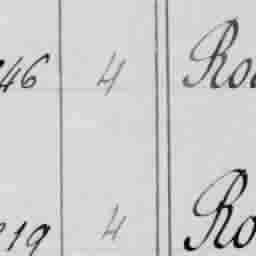 46 4 Ro
19 4 Ro